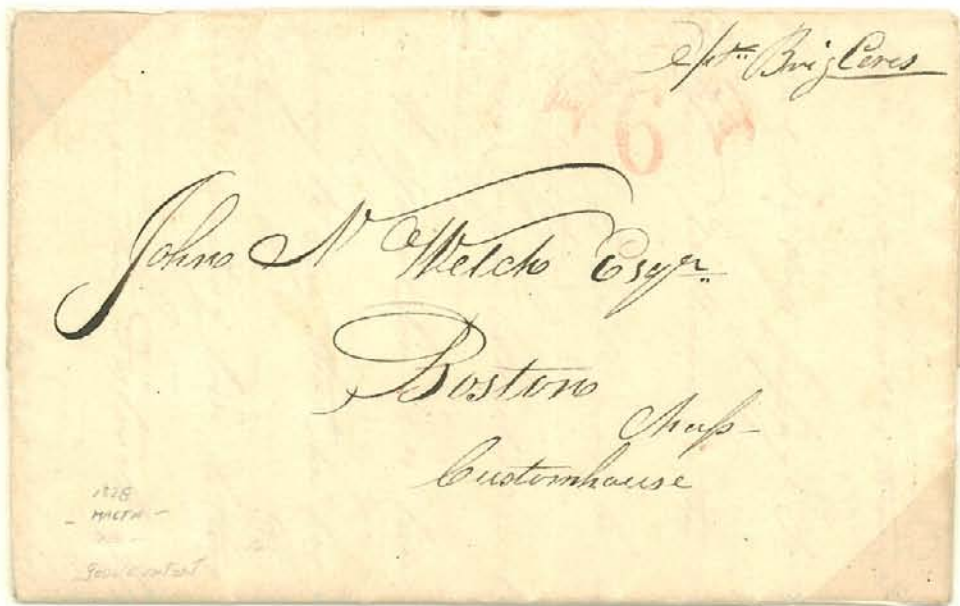 pr. Brig Ceres
6
John N Welch Esqr.
Boston
Mass
Customhouse
1828
good content